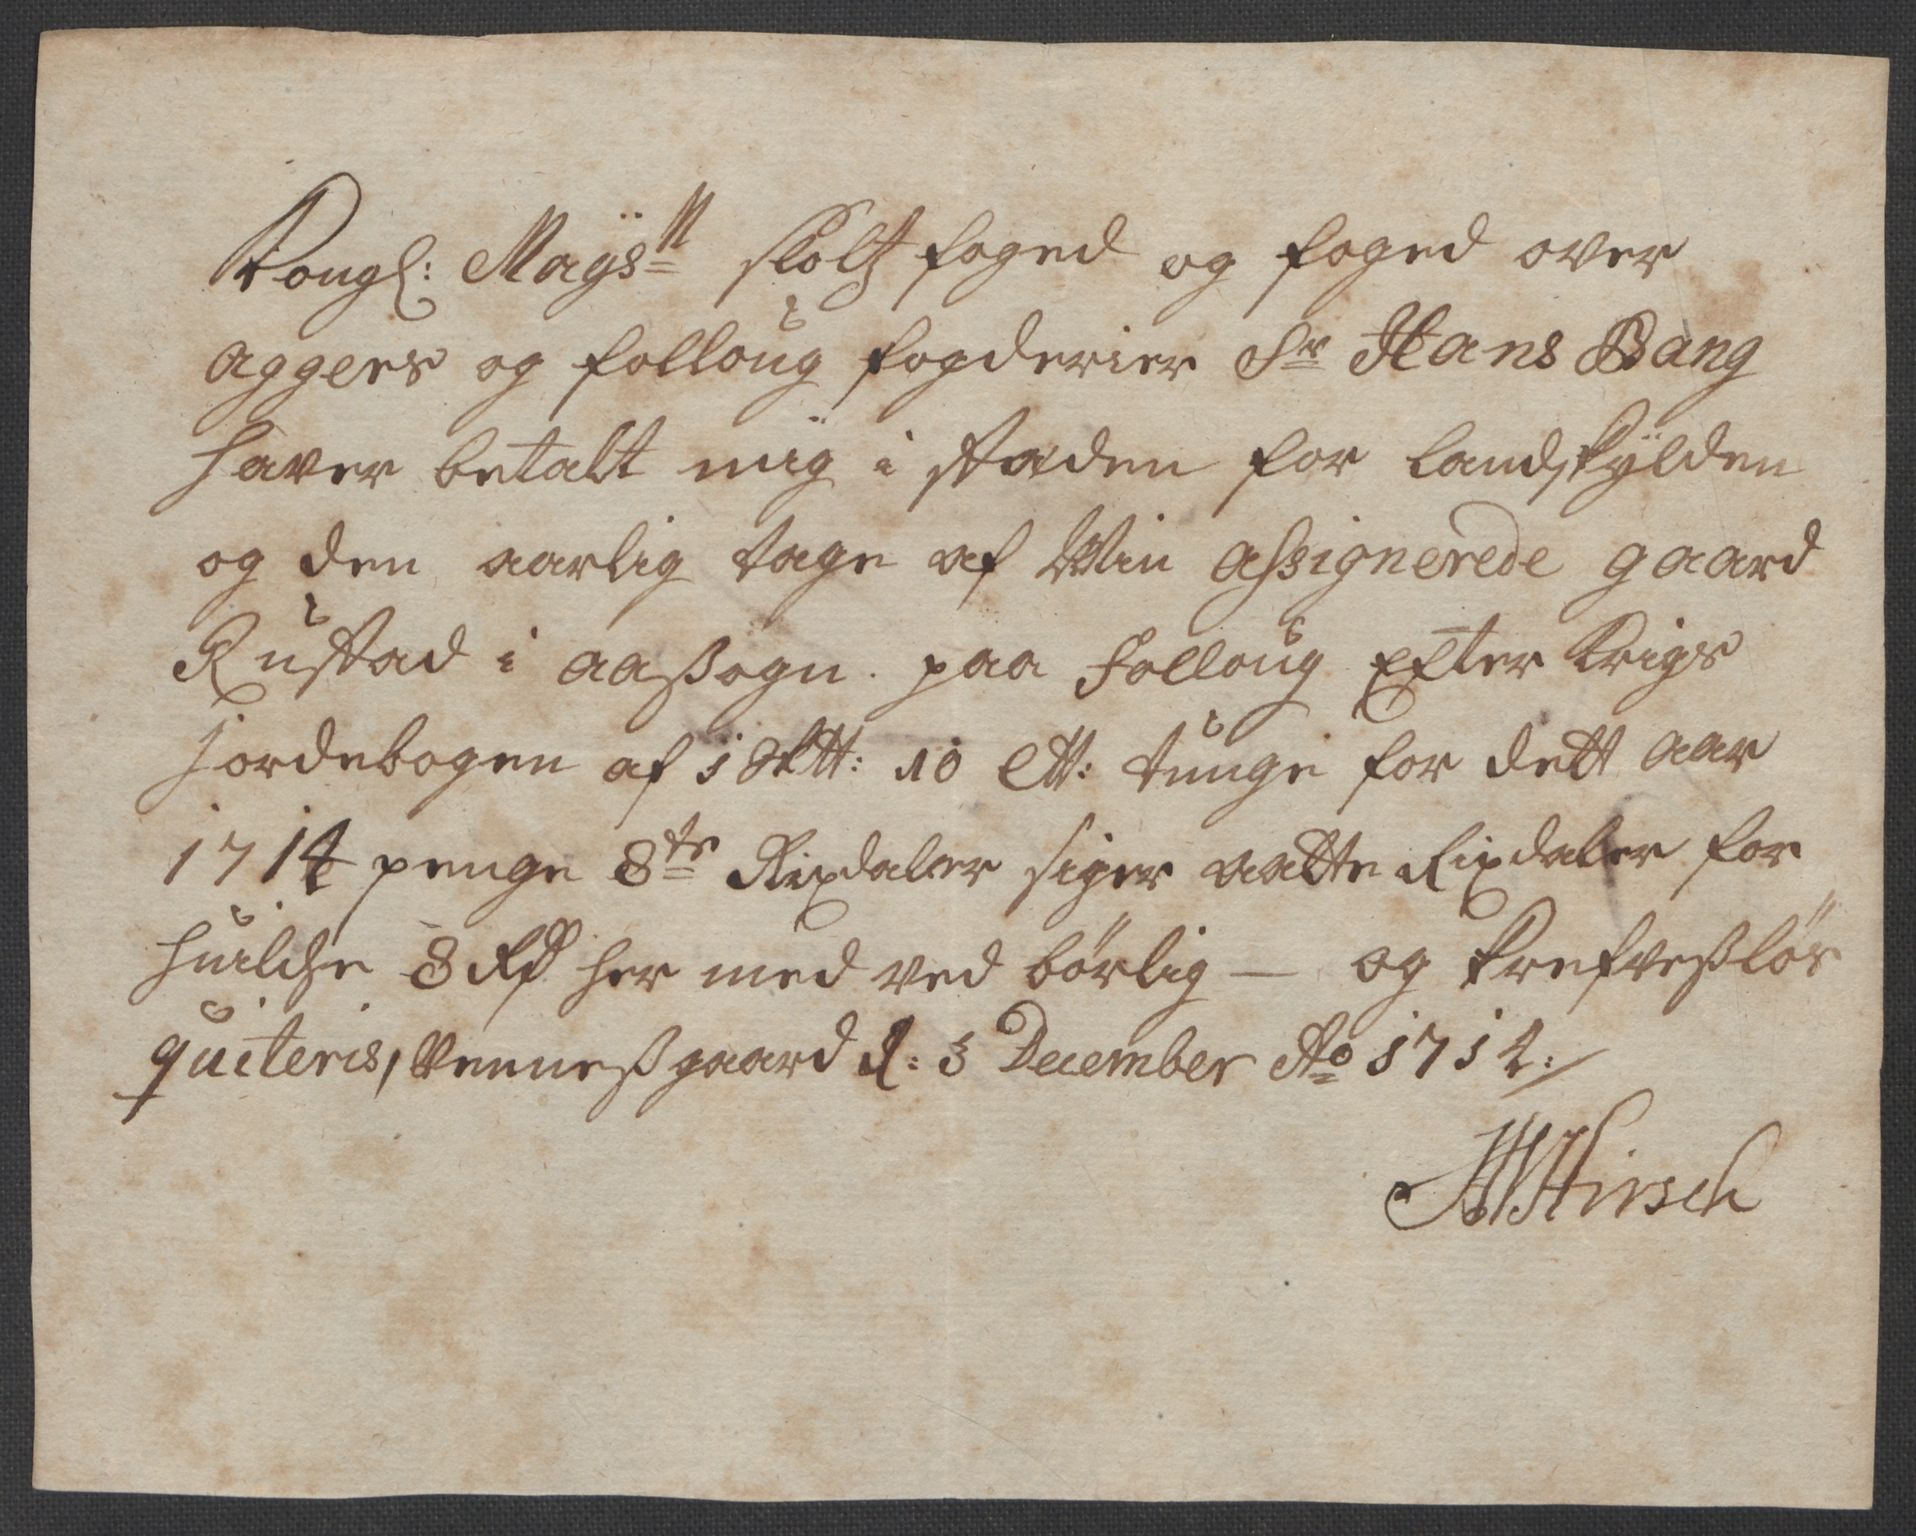 Kongl: Mayst:s slotz foged og foged over
aggers og folloug fogderier Sr Hans Bang
hafver betalt mig i staden for landskÿlden
og den aarlig tage af Min assignerede gaard
Rustad i aaßogn. paa folloug Efter Krigs
jordebogen af 1 Sktt: 10 Ltt: tunge for dett aar
1714 penge 8te Rixdaler siger aatte Rixdaler for
huilche 8 Rd her med ved børlig — og krefvesløs
quiteris, Vennesgaard d: 3 December Ao 1714:/
Hirsch